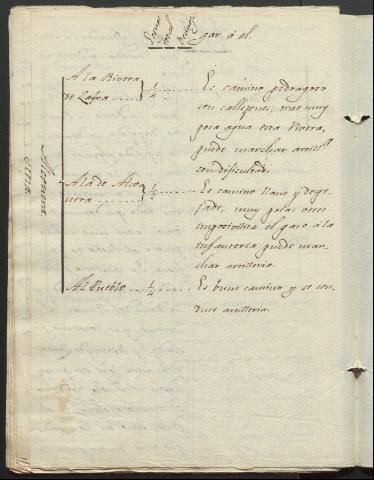 gar ó el
A la Rivera
de Lafra .... } 1/4 ....
Es camino pedragoso
con callepnes; trae muy
poca agua esta Rivera,
puede marchar artill.ª
con dificultad.
A la de Alvo
uera ..... } 1/2 ....
Es camino llano y dege
fade, muy pocas veces
imposivilita el paso á la
infanteria puede mar
char artilleria.
Al Pueblo .... 1/4 ....
Es buen camino y se con
duce artilleria.